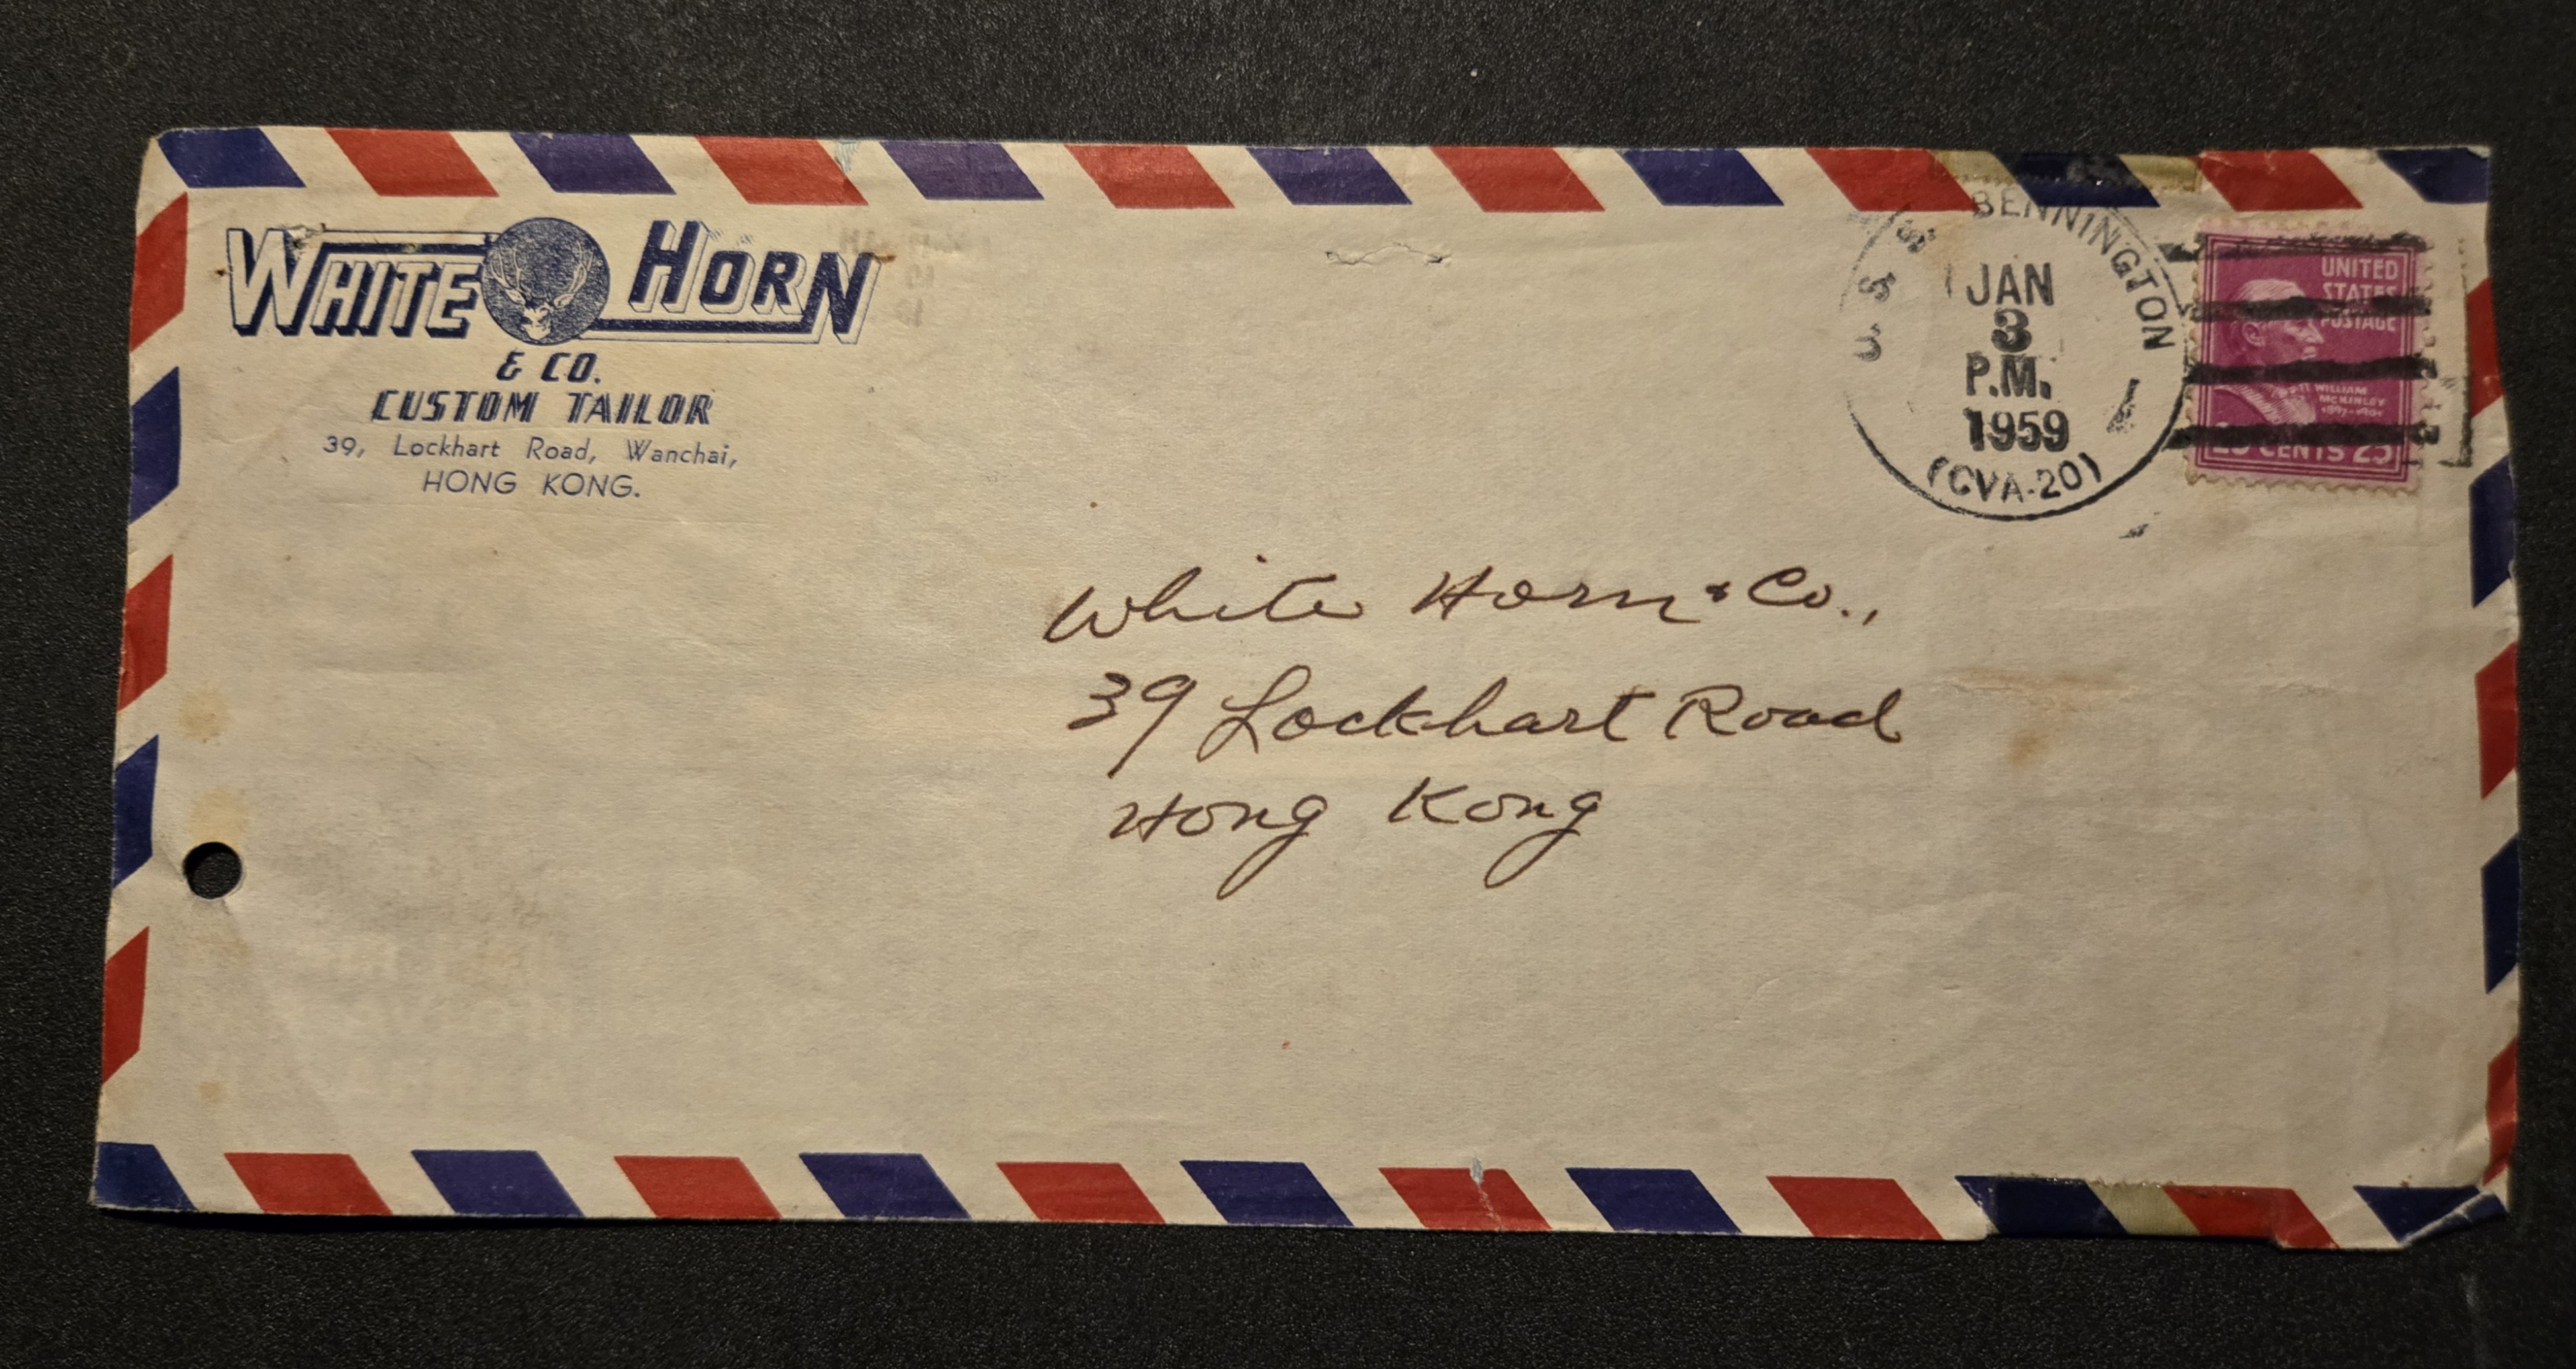 WHITE HORN
& CO.
CUSTOM TAILOR
39, Lockhart Road, Wanchai,
HONG KONG.
U.S.S. BENNINGTON
JAN
3
P.M.
1959
(CVA-20)
UNITED
STATES
POSTAGE
WILLIAM
MCKINLEY
1897-1901
25 CENTS 25
White Horn & Co.,
39 Lockhart Road
Hong Kong